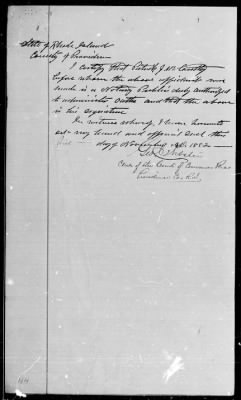 State of Rhode Island
County of Providence
I certify that Patrick J. McCarthy
before whom the above affidavit was
made is a Notary Public duly authorized
to administer Oaths and that the above
is his signature
In witness whereof, I have hereunto
set my hand and official seal this
day of November A.D. 1882
Clerk of the Court of Common Pleas
Providence Co. R.I.